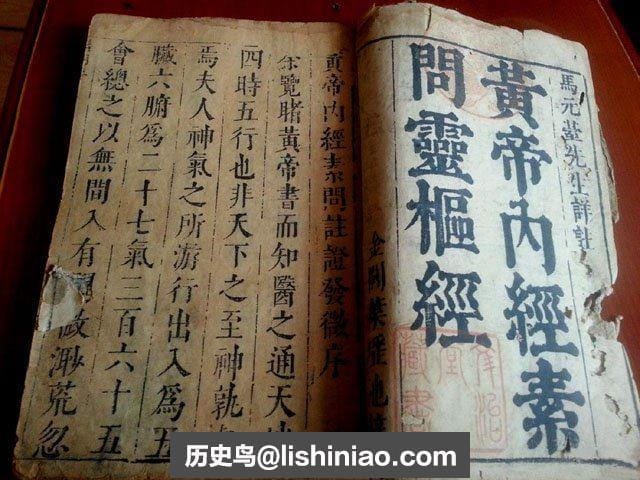 馬元臺先生詳註
黃帝內經素
問靈樞經
黃帝內經素問註證發微序
余覽睹黃帝書而知醫之通天地
四時五行也非天下之至神孰
焉夫人神氣之所游行出入爲五
臟六腑爲二十七氣三百六十五
會總之以無間入有
渺荒忽
金閶葉
藏書
历史鸟@lishiniao.com